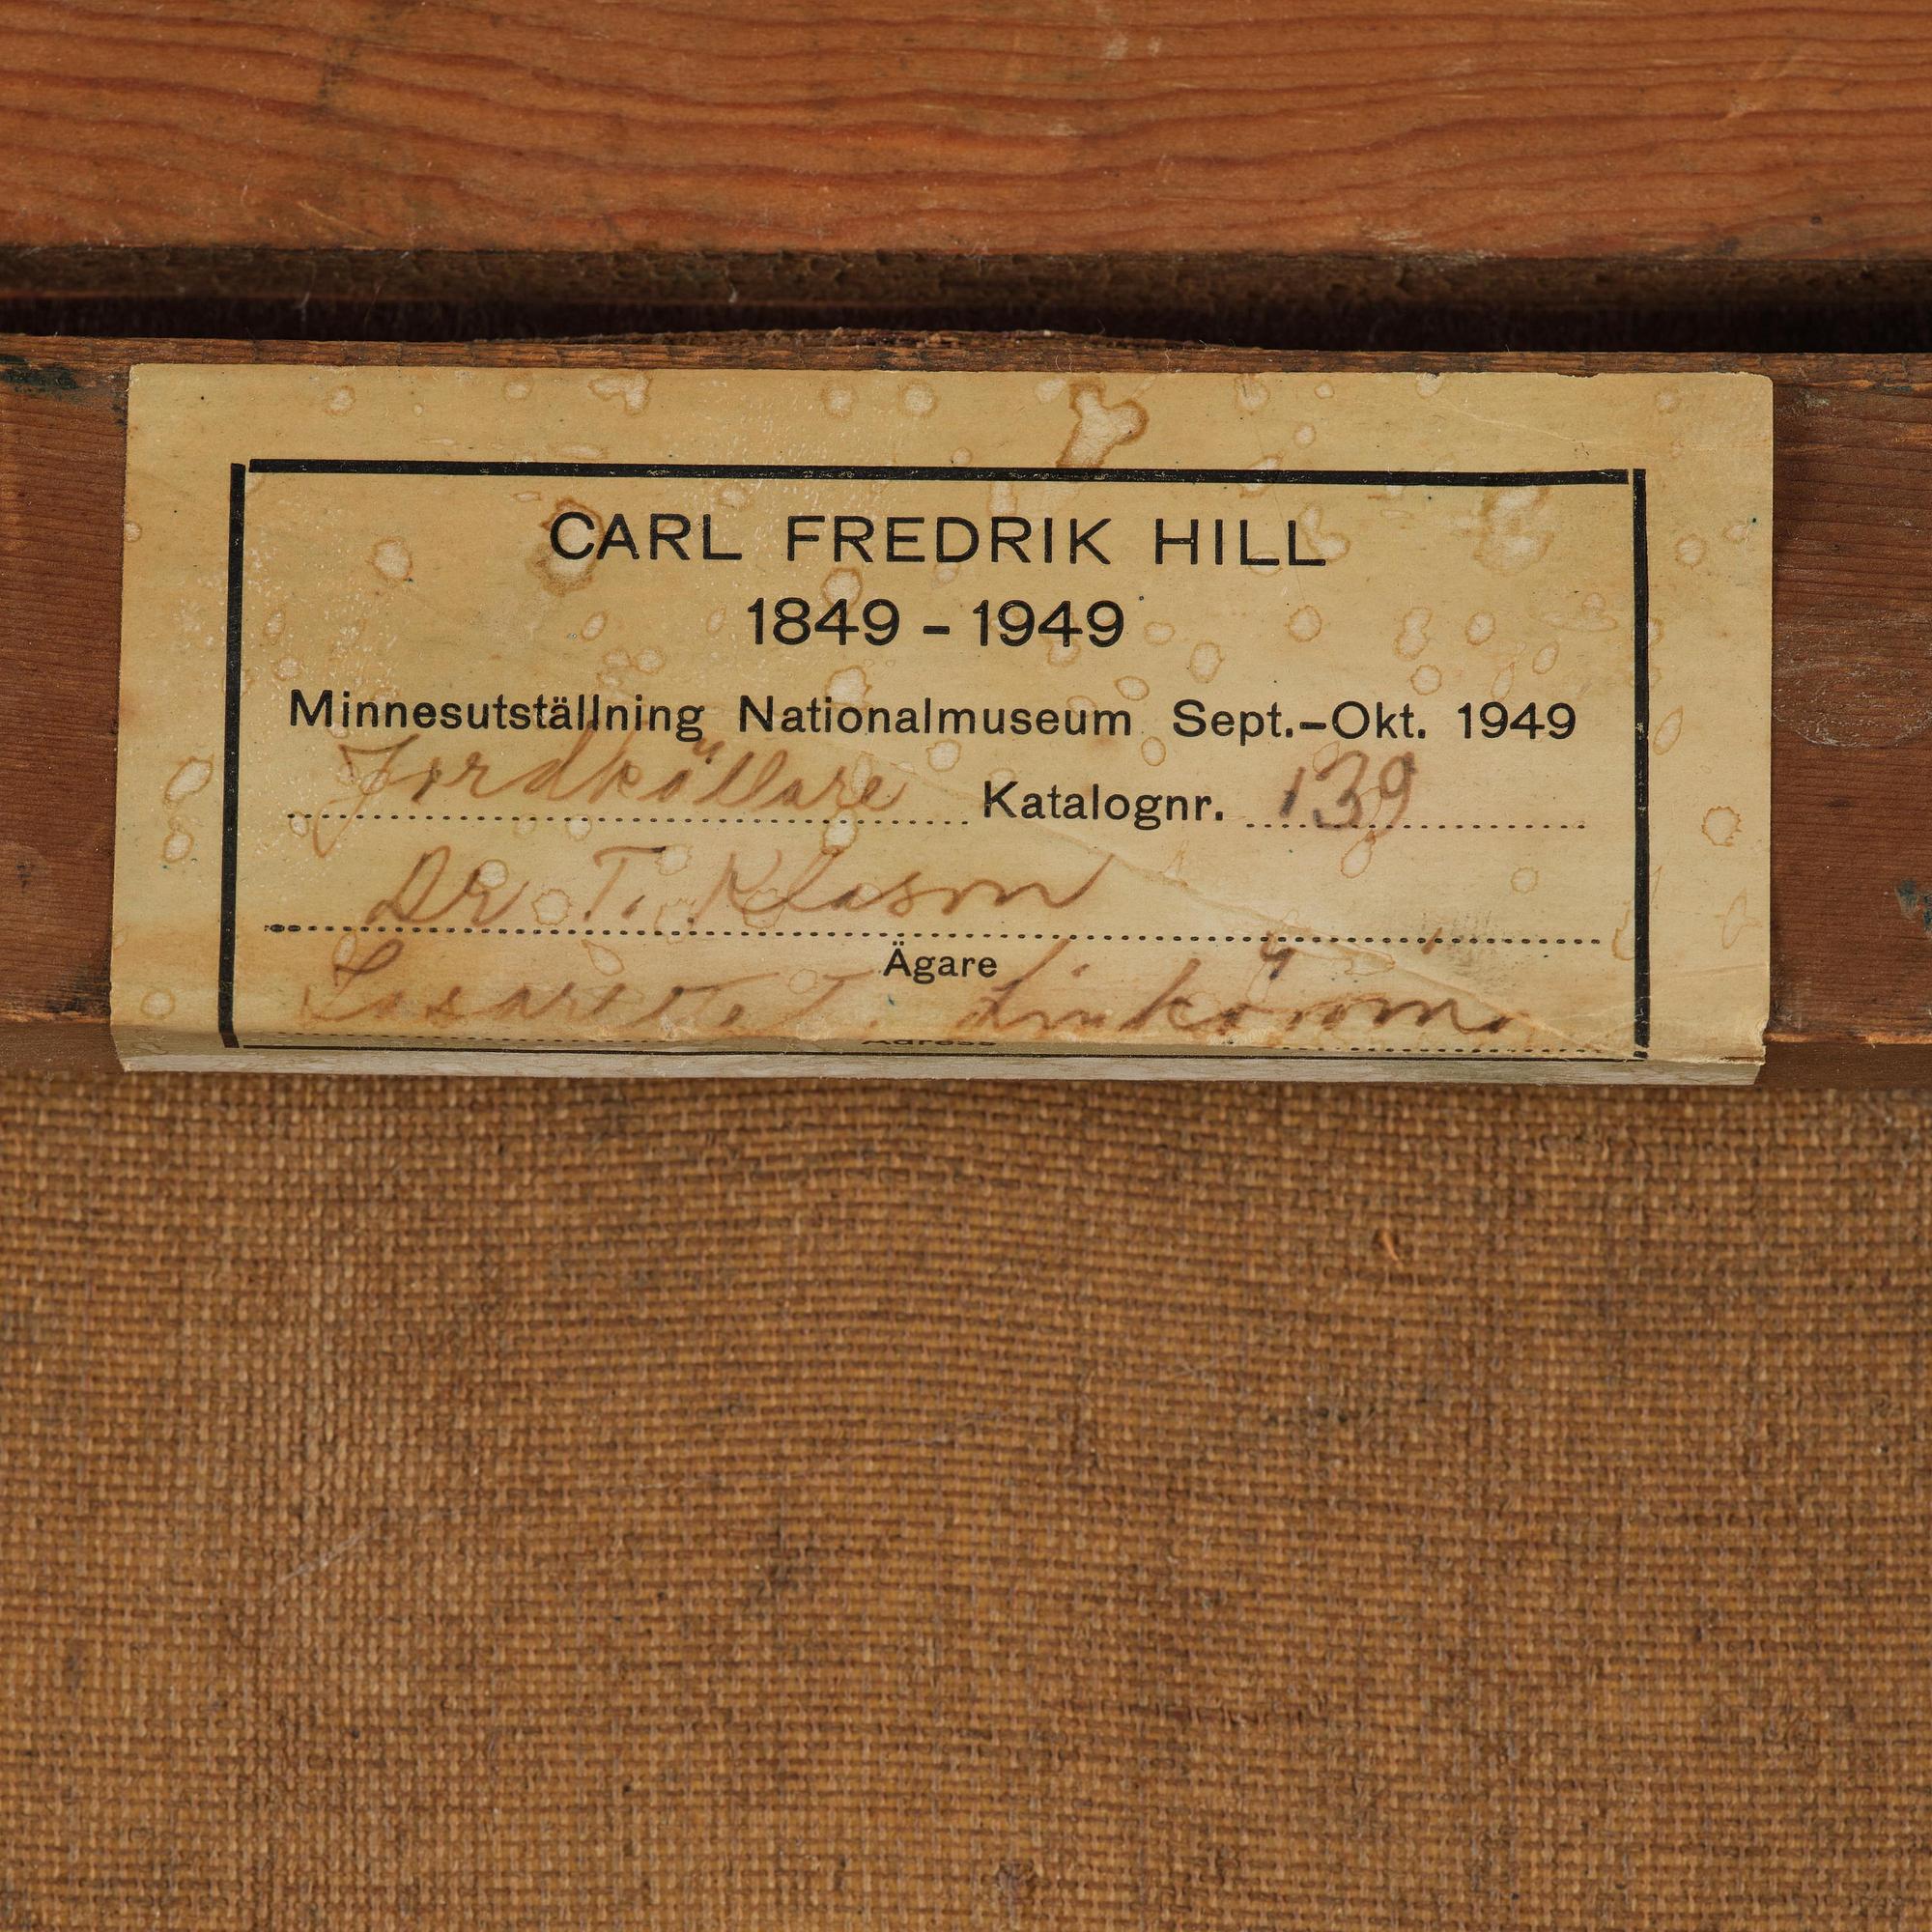 CARL FREDRIK HILL
1849 - 1949
Minnesutställning Nationalmuseum Sept.-Okt. 1949
Jordkällare Katalognr. 139
Dr T. Klason
Ägare
Lasarettet. Linköping
Adress